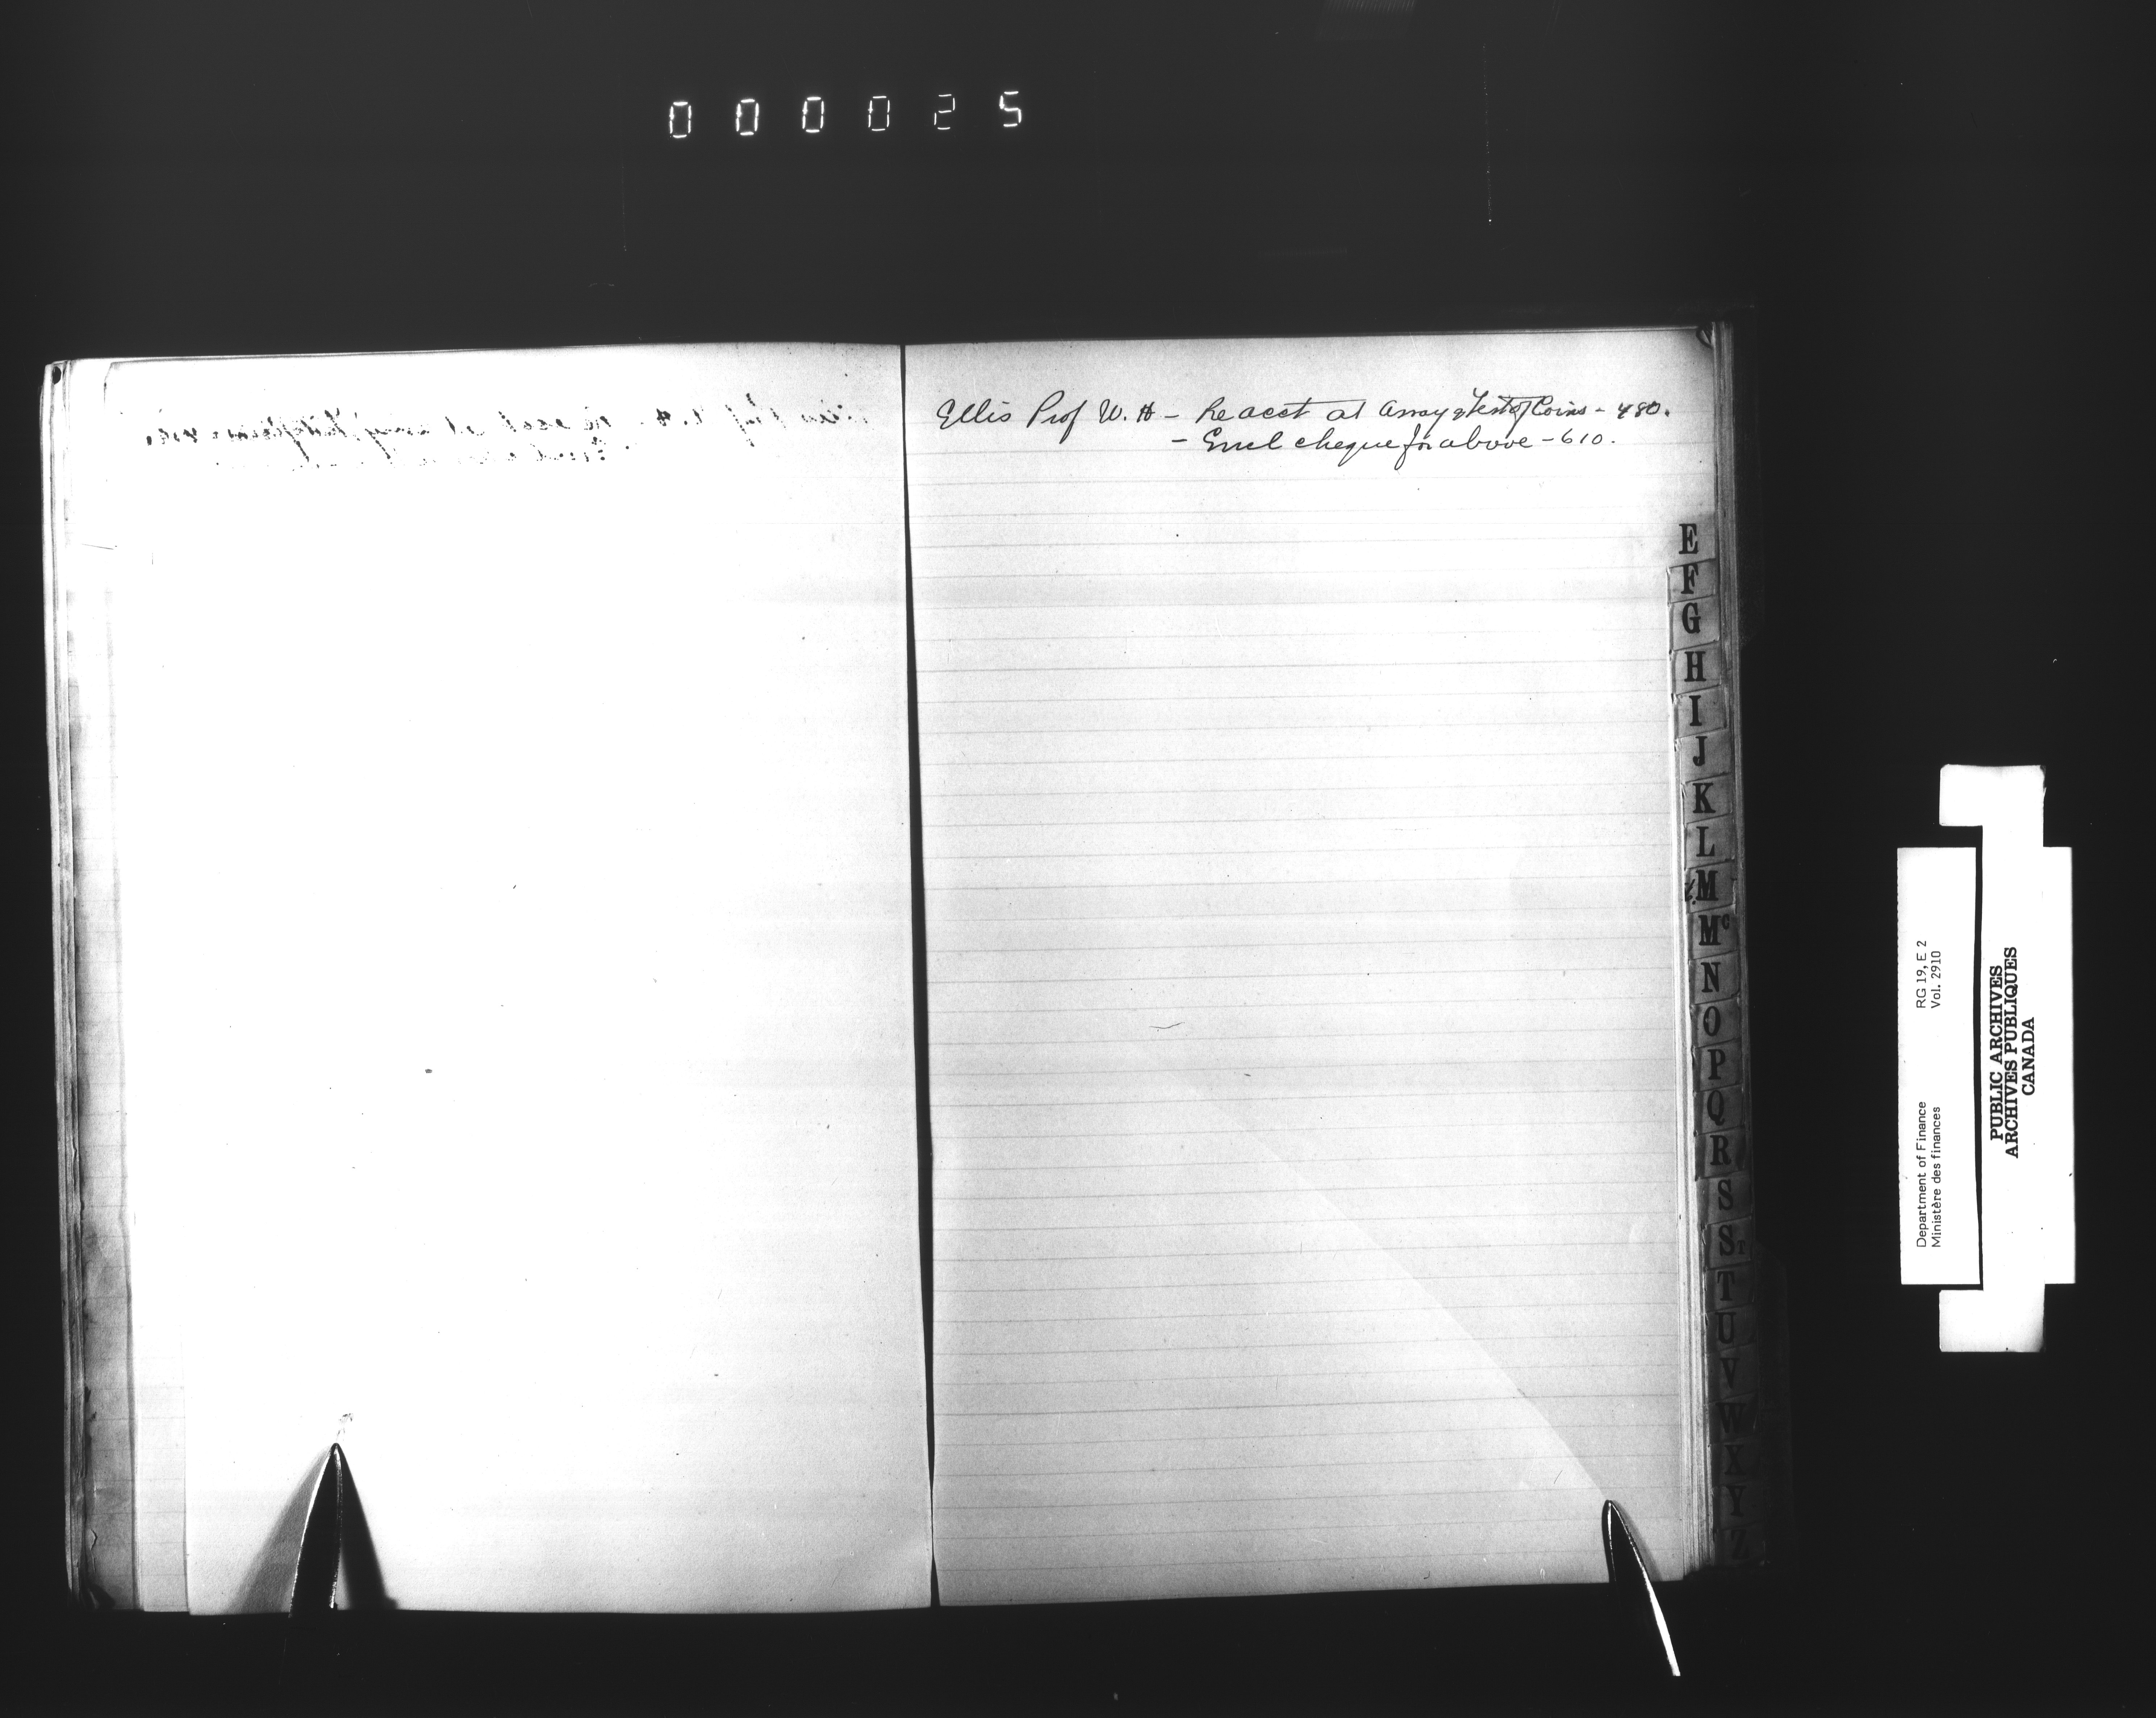 000025
Ellis Prof W. H - Re acct at Assay & Test of Coins - 480.
- Encl cheque for above - 610.
E
F
G
H
I
J
K
L
M
Mc
N
O
P
Q
R
S
St
T
U
V
W
X
Y
Z
Department of Finance RG 19, E 2
Ministère des finances Vol. 2910
PUBLIC ARCHIVES
ARCHIVES PUBLIQUES
CANADA